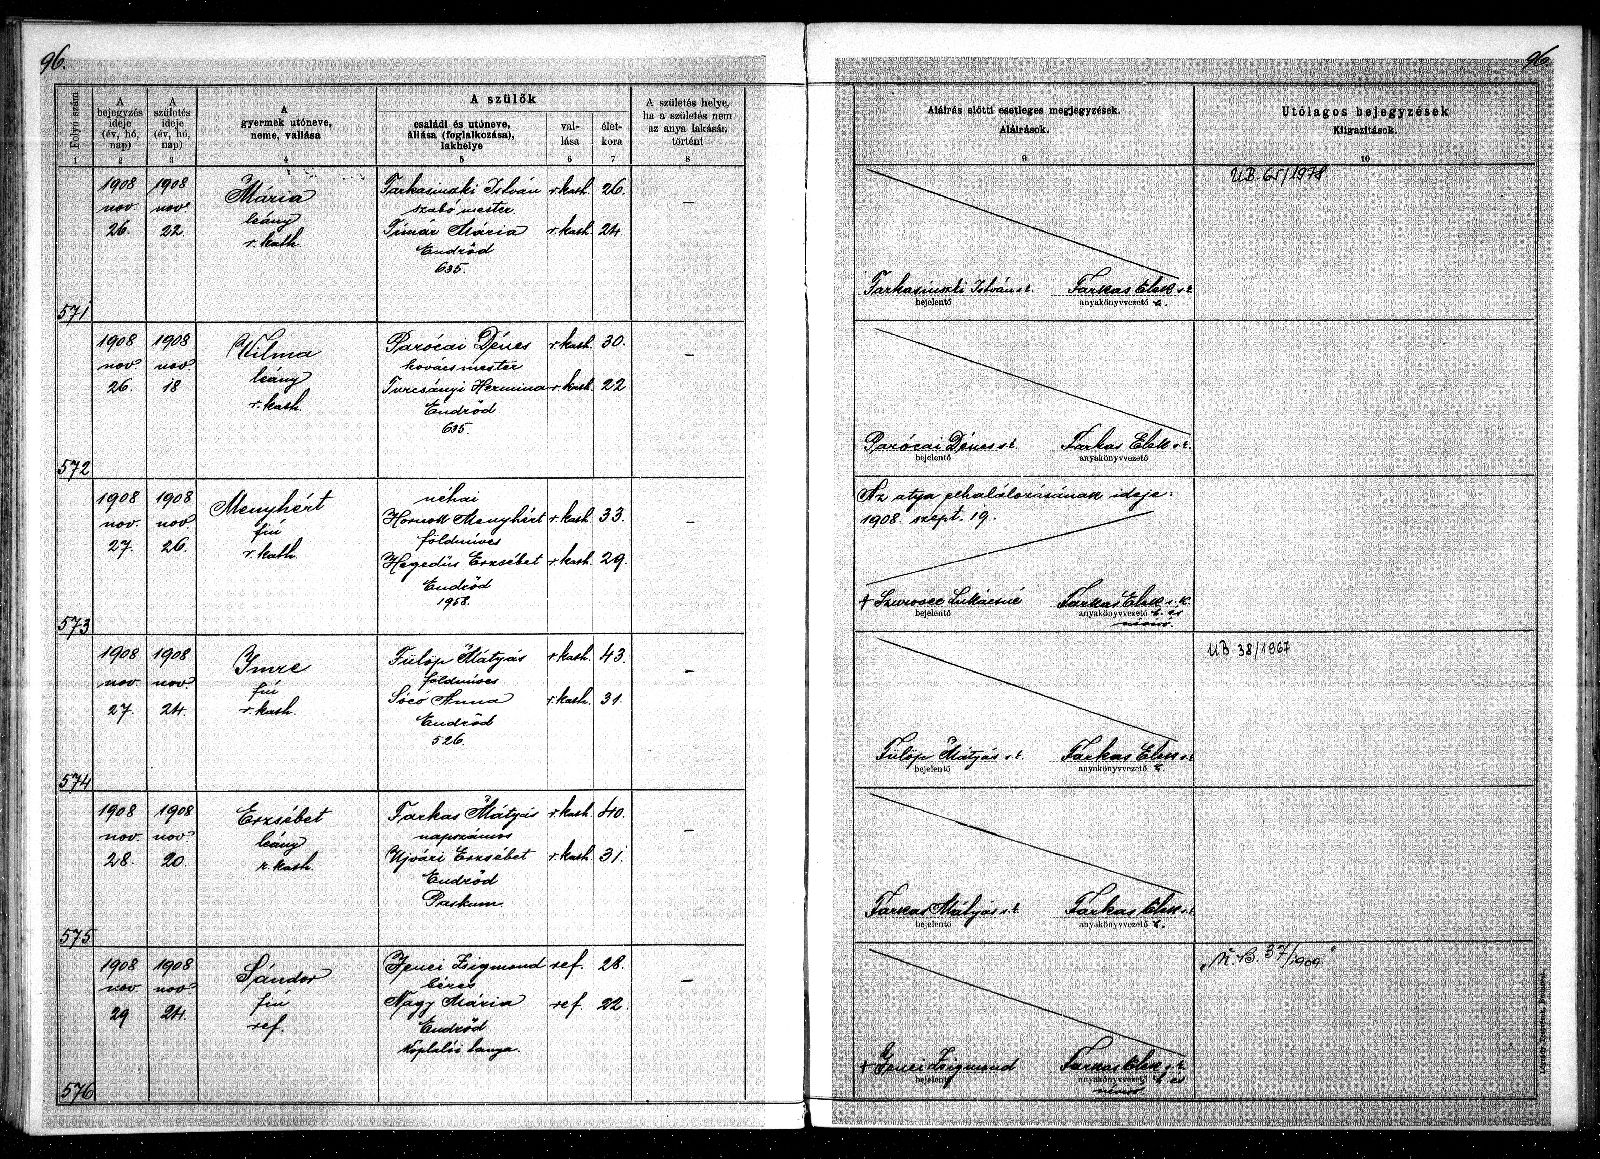 96.
96.
Folyó szám
A bejegyzés ideje (év, hó, nap)
A születés ideje (év, hó, nap)
A gyermek utóneve, neme, vallása
A szülők
családi és utóneve, állása (foglalkozása), lakhelye
val-lása
élet-kora
A születés helye, ha a születés nem az anya lakásán történt
Aláírás előtti esetleges megjegyzések.
Aláírások.
Utólagos bejegyzések
Kiigazítások.
1 2 3 4 5 6 7 8 9 10
571
1908 nov. 26.
1908 nov. 22
Mária
leány
r. kath.
Farkasinszki István r. kath. 26.
szabó mester
Tímár Mária r. kath. 24
Endrőd
635.
–
Farkasinszki István s.k.
bejelentő
Farkas Elek s.k.
anyakönyvvezető
UB. 65/1978
572
1908 nov 26.
1908 nov 18
Vilma
leány
r. kath.
Parócai Dénes r. kath. 30.
kovács mester
Turcsányi Hermina r. kath. 22
Endrőd
635.
–
Parócai Dénes s.k.
bejelentő
Farkas Elek s.k.
anyakönyvvezető
573
1908 nov. 27.
1908 nov 26.
Menyhért
fiú
r. kath.
néhai
Hornok Menyhért r. kath. 33.
földmíves
Hegedüs Erzsébet r. kath. 29.
Endrőd
1958.
–
Az atya elhalálozásának ideje:
1908. szept. 19.
+ Szurovec Lukácsné
bejelentő
Farkas Elek s.k.
anyakönyvvezető
574
1908 nov. 27.
1908 nov. 24.
Imre
fiú
r. kath.
Fülöp Mátyás r. kath. 43.
földmíves
Sócó Anna r. kath. 31.
Endrőd
526.
–
Fülöp Mátyás s.k.
bejelentő
Farkas Elek s.k.
anyakönyvvezető
UB 38/1967
575
1908 nov. 28.
1908 nov. 20.
Erzsébet
leány
r. kath.
Farkas Mátyás r. kath. 40.
napszámos
Ujvári Erzsébet r. kath. 31.
Endrőd
Paskum
–
Farkas Mátyás s.k.
bejelentő
Farkas Elek s.k.
anyakönyvvezető
576
1908 nov 29
1908 nov. 24.
Sándor
fiú
ref.
Jenei Zsigmond ref. 28.
béres
Nagy Mária ref. 22.
Endrőd
tanya.
–
+ Jenei Zsigmond
bejelentő
Farkas Elek s.k.
anyakönyvvezető
37/1909